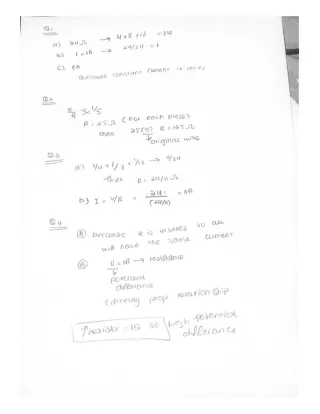 Q1
a) 24Ω → 4+8+12 = 24
b) I = 1A → 24/24 = 1
c) 0A
constant current in series
Q2
R = 25Ω (For each piece)
then 25(5) R = 125Ω
original wire
Q3
a) 1/4 + 1/8 + 1/12 →
then R = 24/11 Ω
b) I = V/R = = 11A
Q4
A because it is in series so all
will have the same current
B → resistance
potential
difference
(directly prop relationship
↑ resistor so high potential
difference